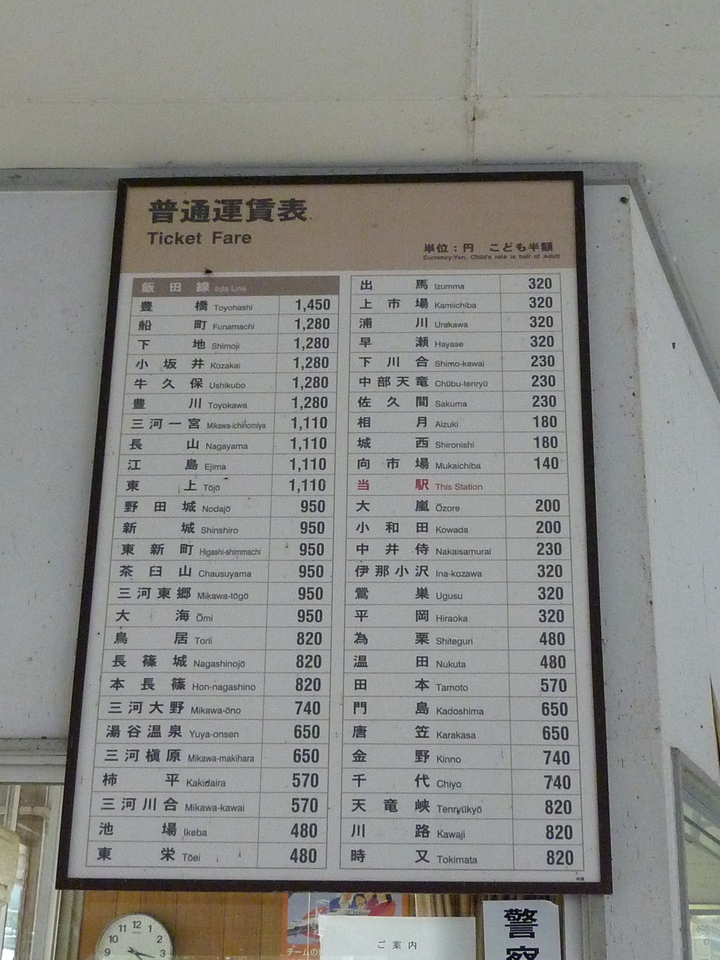 普通運賃表
Ticket Fare
単位：円 こども半額
Currency:Yen, Child's rate is half of Adult
飯田線 Iida Line
豊橋 Toyohashi 1,450
船町 Funamachi 1,280
下地 Shimoji 1,280
小坂井 Kozakai 1,280
牛久保 Ushikubo 1,280
豊川 Toyokawa 1,280
三河一宮 Mikawa-ichinomiya 1,110
長山 Nagayama 1,110
江島 Ejima 1,110
東上 Tōjō 1,110
野田城 Nodajō 950
新城 Shinshiro 950
東新町 Higashi-shimmachi 950
茶臼山 Chausuyama 950
三河東郷 Mikawa-tōgō 950
大海 Ōmi 950
鳥居 Torii 820
長篠城 Nagashinojō 820
本長篠 Hon-nagashino 820
三河大野 Mikawa-ōno 740
湯谷温泉 Yuya-onsen 650
三河槇原 Mikawa-makihara 650
柿平 Kakidaira 570
三河川合 Mikawa-kawai 570
池場 Ikeba 480
東栄 Tōei 480
出馬 Izumma 320
上市場 Kamiichiba 320
浦川 Urakawa 320
早瀬 Hayase 320
下川合 Shimo-kawai 230
中部天竜 Chūbu-tenryū 230
佐久間 Sakuma 230
相月 Aizuki 180
城西 Shironishi 180
向市場 Mukaichiba 140
当駅 This Station
大嵐 Ōzore 200
小和田 Kowada 200
中井侍 Nakaisamurai 230
伊那小沢 Ina-kozawa 320
鶯巣 Ugusu 320
平岡 Hiraoka 320
為栗 Shiteguri 480
温田 Nukuta 480
田本 Tamoto 570
門島 Kadoshima 650
唐笠 Karakasa 650
金野 Kinno 740
千代 Chiyo 740
天竜峡 Tenryūkyō 820
川路 Kawaji 820
時又 Tokimata 820
11 12 1
10 2
9 3
8
ご案内
警察